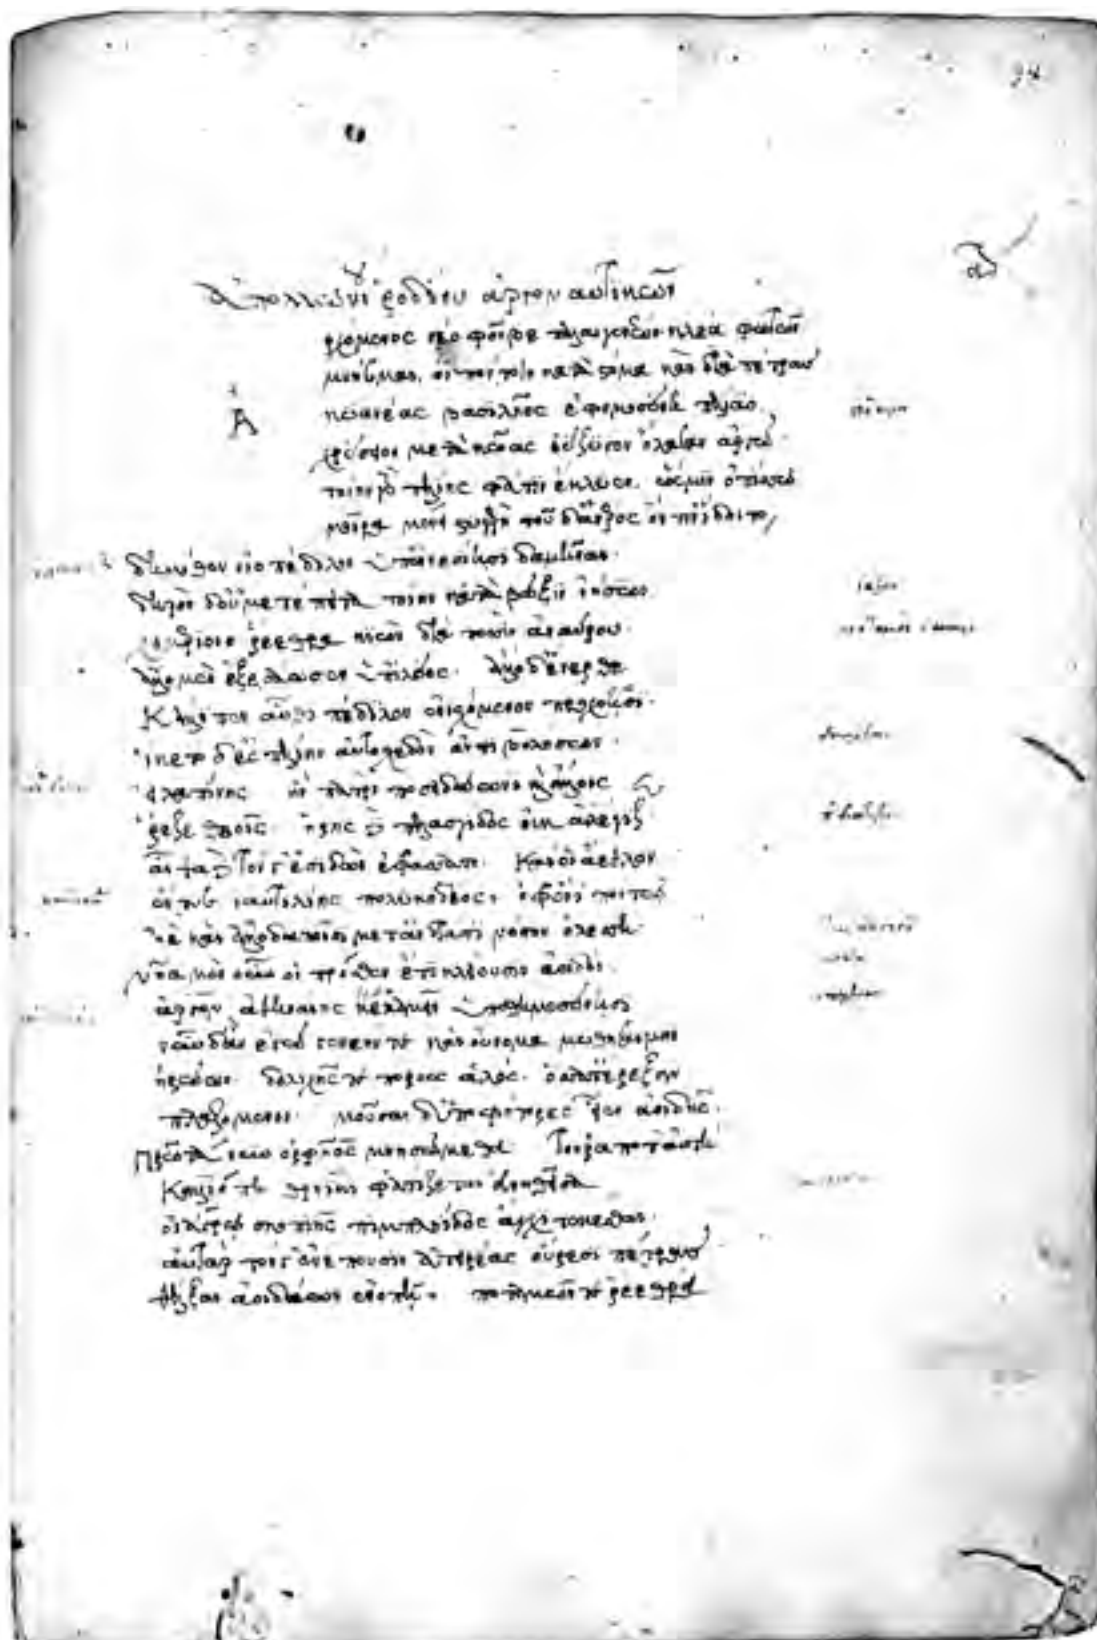 ἀπολλωνίου ῥοδίου ἀργοναυτικῶν
Α
ρχόμενος σέο φοῖβε παλαιγενέων κλέα φωτῶν
μνήσομαι. οἳ πόντοιο κατὰ στόμα καὶ διὰ πέτρας
κυανέας βασιλῆος ἐφημοσύνη πελίαο.
χρύσειον μετὰ κῶας ἐύζυγον ἤλασαν ἀργώ.
τοίην γὰρ πελίης φάτιν ἔκλυεν. ὥς μιν ὀπίσσω
μοῖρα μένει στυγερὴ τοῦδ' ἀνέρος ὅν τιν' ἴδοιτο
δημόθεν οἰοπέδιλον ὑπ' ἐννεσίησι δαμῆναι.
δηρὸν δ' οὐ μετέπειτα τεὴν κατὰ βάξιν ἰήσων
χειμερίοιο ῥέεθρα κιὼν διὰ ποσσὶν ἀναύρου.
ἄλλο μὲν ἐξεσάωσεν ὑπ' ἰλύος. ἄλλο δ' ἔνερθε
Κάλλιπεν αὖθι πέδιλον ἐνισχόμενον προχοῆσιν.
ἵκετο δ' ἐς πελίην αὐτοσχεδὸν ἀντιβολήσων.
εἰλαπίνης ἣν πατρὶ ποσειδάωνι καὶ ἄλλοις
ῥέζε θεοῖς. ἥρης δὲ πελασγίδος οὐκ ἀλέγιζε
αἶψα δὲ τόν γ' ἐσιδὼν ἐφράσσατο. Καί οἱ ἄεθλον
ἔντυε ναυτιλίης πολυκηδέος, ὄφρ' ἐνὶ πόντω
ἠὲ καὶ ἀλλοδαποῖσι μετ' ἀνδράσι νόστον ὀλέσση.
νῆα μὲν οὖν οἱ πρόσθεν ἔτι κλείουσιν ἀοιδοὶ.
ἄργον ἀθηναίης καμέειν ὑποθημοσύνησι
νῦν δ' ἂν ἐγὼ γενεήν τε καὶ οὔνομα μυθησαίμην
ἡρώων. δολιχῆς τε πόρους ἁλός. ὅσσα τ' ἔρεξαν
πλαζόμενοι. μοῦσαι δ' ὑποφήτορες εἶεν ἀοιδῆς.
Πρῶτά νυν ὀρφῆος μνησώμεθα τόν ῥά ποτ' αὐτὴ
Καλλιόπη θρήικι φατίζεται εὐνηθεῖσα
οἰάγρω σκοπιῆς πιμπληίδος ἄγχι τεκέσθαι.
αὐτὰρ τόν γ' ἐνέπουσιν ἀτειρέας οὔρεσι πέτρας
θέλξαι ἀοιδάων ἐνοπῆ. ποταμῶν τε ῥέεθρα